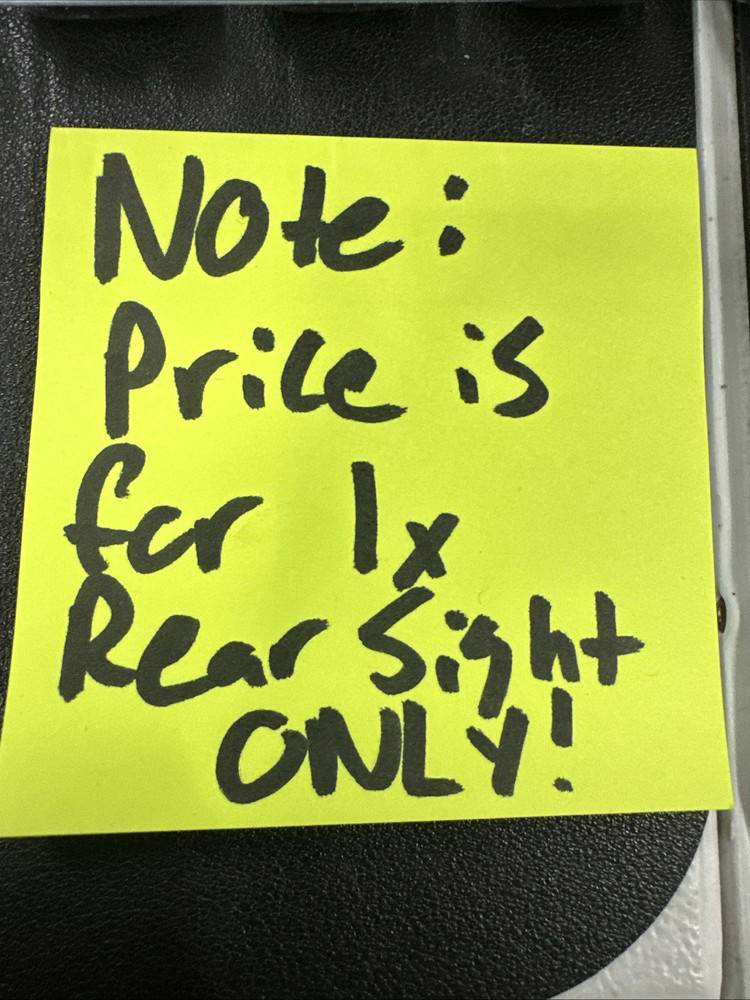 Note:
Price is
for 1x
Rear Sight
ONLY!